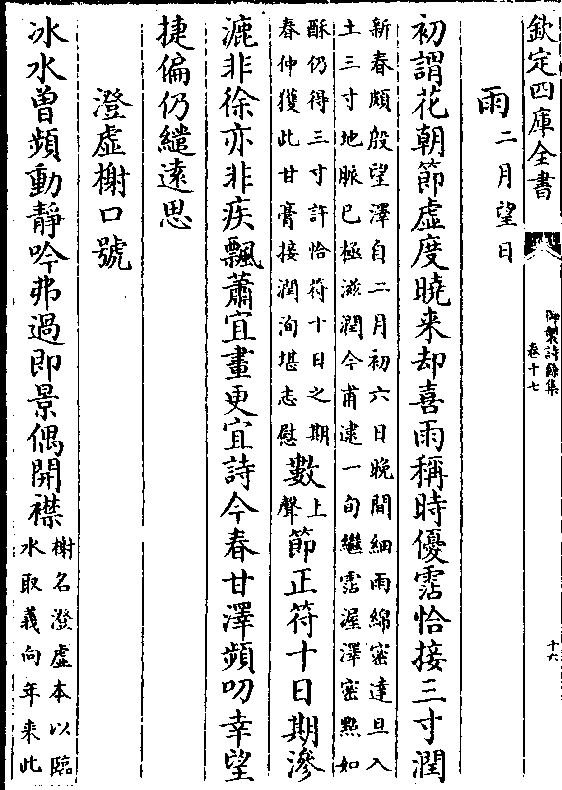 欽定四庫全書
御製詩餘集
卷十七
十六
雨二月望日
初謂花朝節虛度曉来却喜雨稱時優霑恰接三寸潤
新春頗殷望澤自二月初六日晚間細雨綿密達旦入
土三寸地脈已極滋潤今甫逮一旬繼霑渥澤密㸃如
酥仍得三寸許恰符十日之期
春仲獲此甘膏接潤洵堪志慰
數上聲節正符十日期滲
漉非徐亦非疾飄蕭宜畫更宜詩今春甘澤頻叨幸望
捷偏仍繾遠思
澄虛榭口號
冰水曾頻動靜吟弗過即景偶開襟榭名澄虛本以臨
水取義向年来此